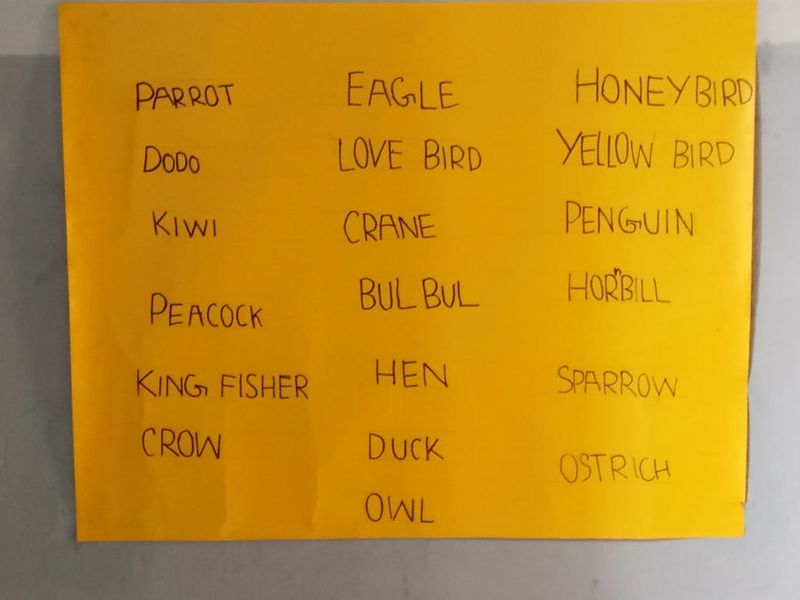 PARROT
DODO
KIWI
PEACOCK
KING FISHER
CROW
EAGLE
LOVE BIRD
CRANE
BUL BUL
HEN
DUCK
OWL
HONEYBIRD
YELLOW BIRD
PENGUIN
HORNBILL
SPARROW
OSTRICH